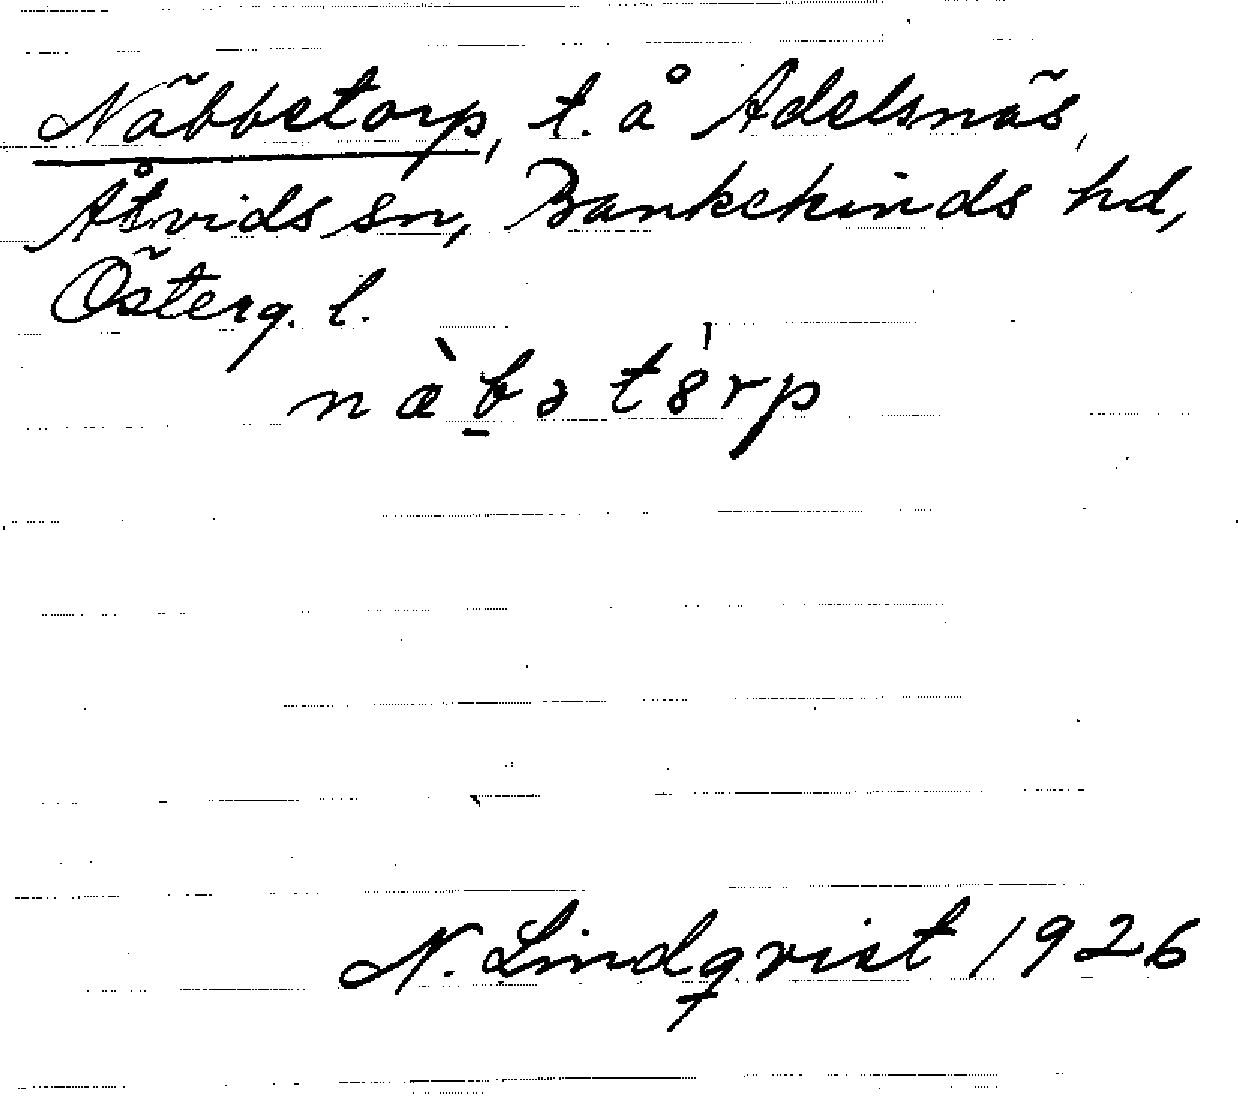 Näbbetorp, t. å Adelsnäs,
Åtvids sn, Bankekinds hd,
Österg. l.
næ̀b̠ətȯrp
N. Lindqvist 1926